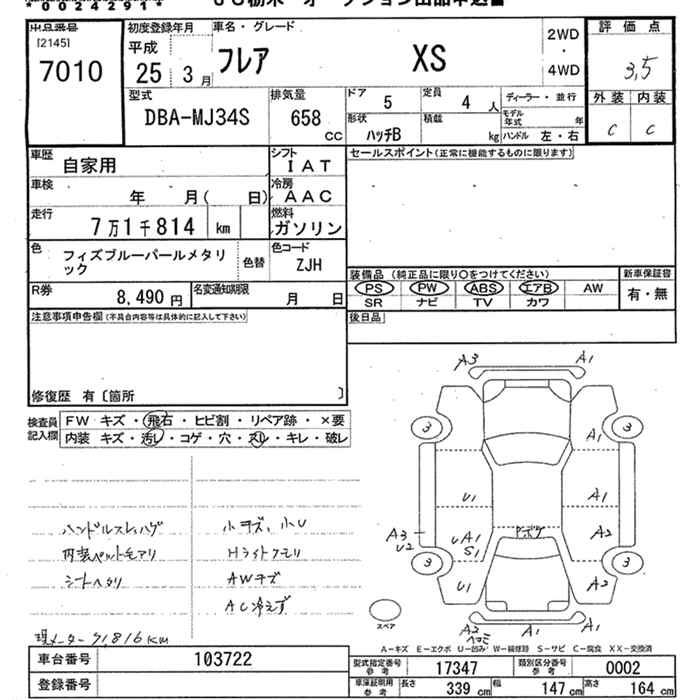 *00242291*
JU栃木 オークション出品申込書
出品番号
[2145]
7010
初度登録年月
平成
25 3月
車名・グレード
フレア XS
2WD
・
4WD
評価点
3,5
外装 内装
C C
型式
DBA-MJ34S
排気量
658
CC
ドア 5
定員 4 人
形状 ハッチB
積載 kg
ディーラー・並行
モデル年式 年
ハンドル 左・右
車歴 自家用
シフト IAT
車検 年 月( 日)
冷房 AAC
走行 7万1千814 km
燃料 ガソリン
色 フィズブルーパールメタリ
ック
色替
色コード ZJH
R券 8,490 円
名変通知期限 月 日
セールスポイント(正常に機能するものに限ります)
装備品 (純正品に限り〇をつけてください)
PS PW ABS エアB AW
SR ナビ TV カワ
新車保証書
有・無
後日品
注意事項申告欄(不具合内容等は具体的に記入して下さい)
修復歴 有〔箇所 〕
検査員
記入欄
FW キズ・飛石・ヒビ割・リペア跡・×要
内装 キズ・汚レ・コゲ・穴・スレ・キレ・破レ
ハンドルスレ,ハゲ
内装ペット毛アリ
シートヘタリ
小キズ、小U
Hライトクモリ
AWキズ
AC冷えず
現メーター 71,816KM
A3 A1
3 3
A1
U1 A1
A3
U2
UA1
S1
ヤボケ
A2
3 3
U1 A2
A2 A1
スペア
A-キズ E-エクボ U-凹み W-補修跡 S-サビ C-腐食 XX-交換済
車台番号 103722
登録番号
型式指定番号
参考
17347
類別区分番号
参考
0002
車庫証明用
参考
長さ 339 cm
幅 147 cm
高さ 164 cm